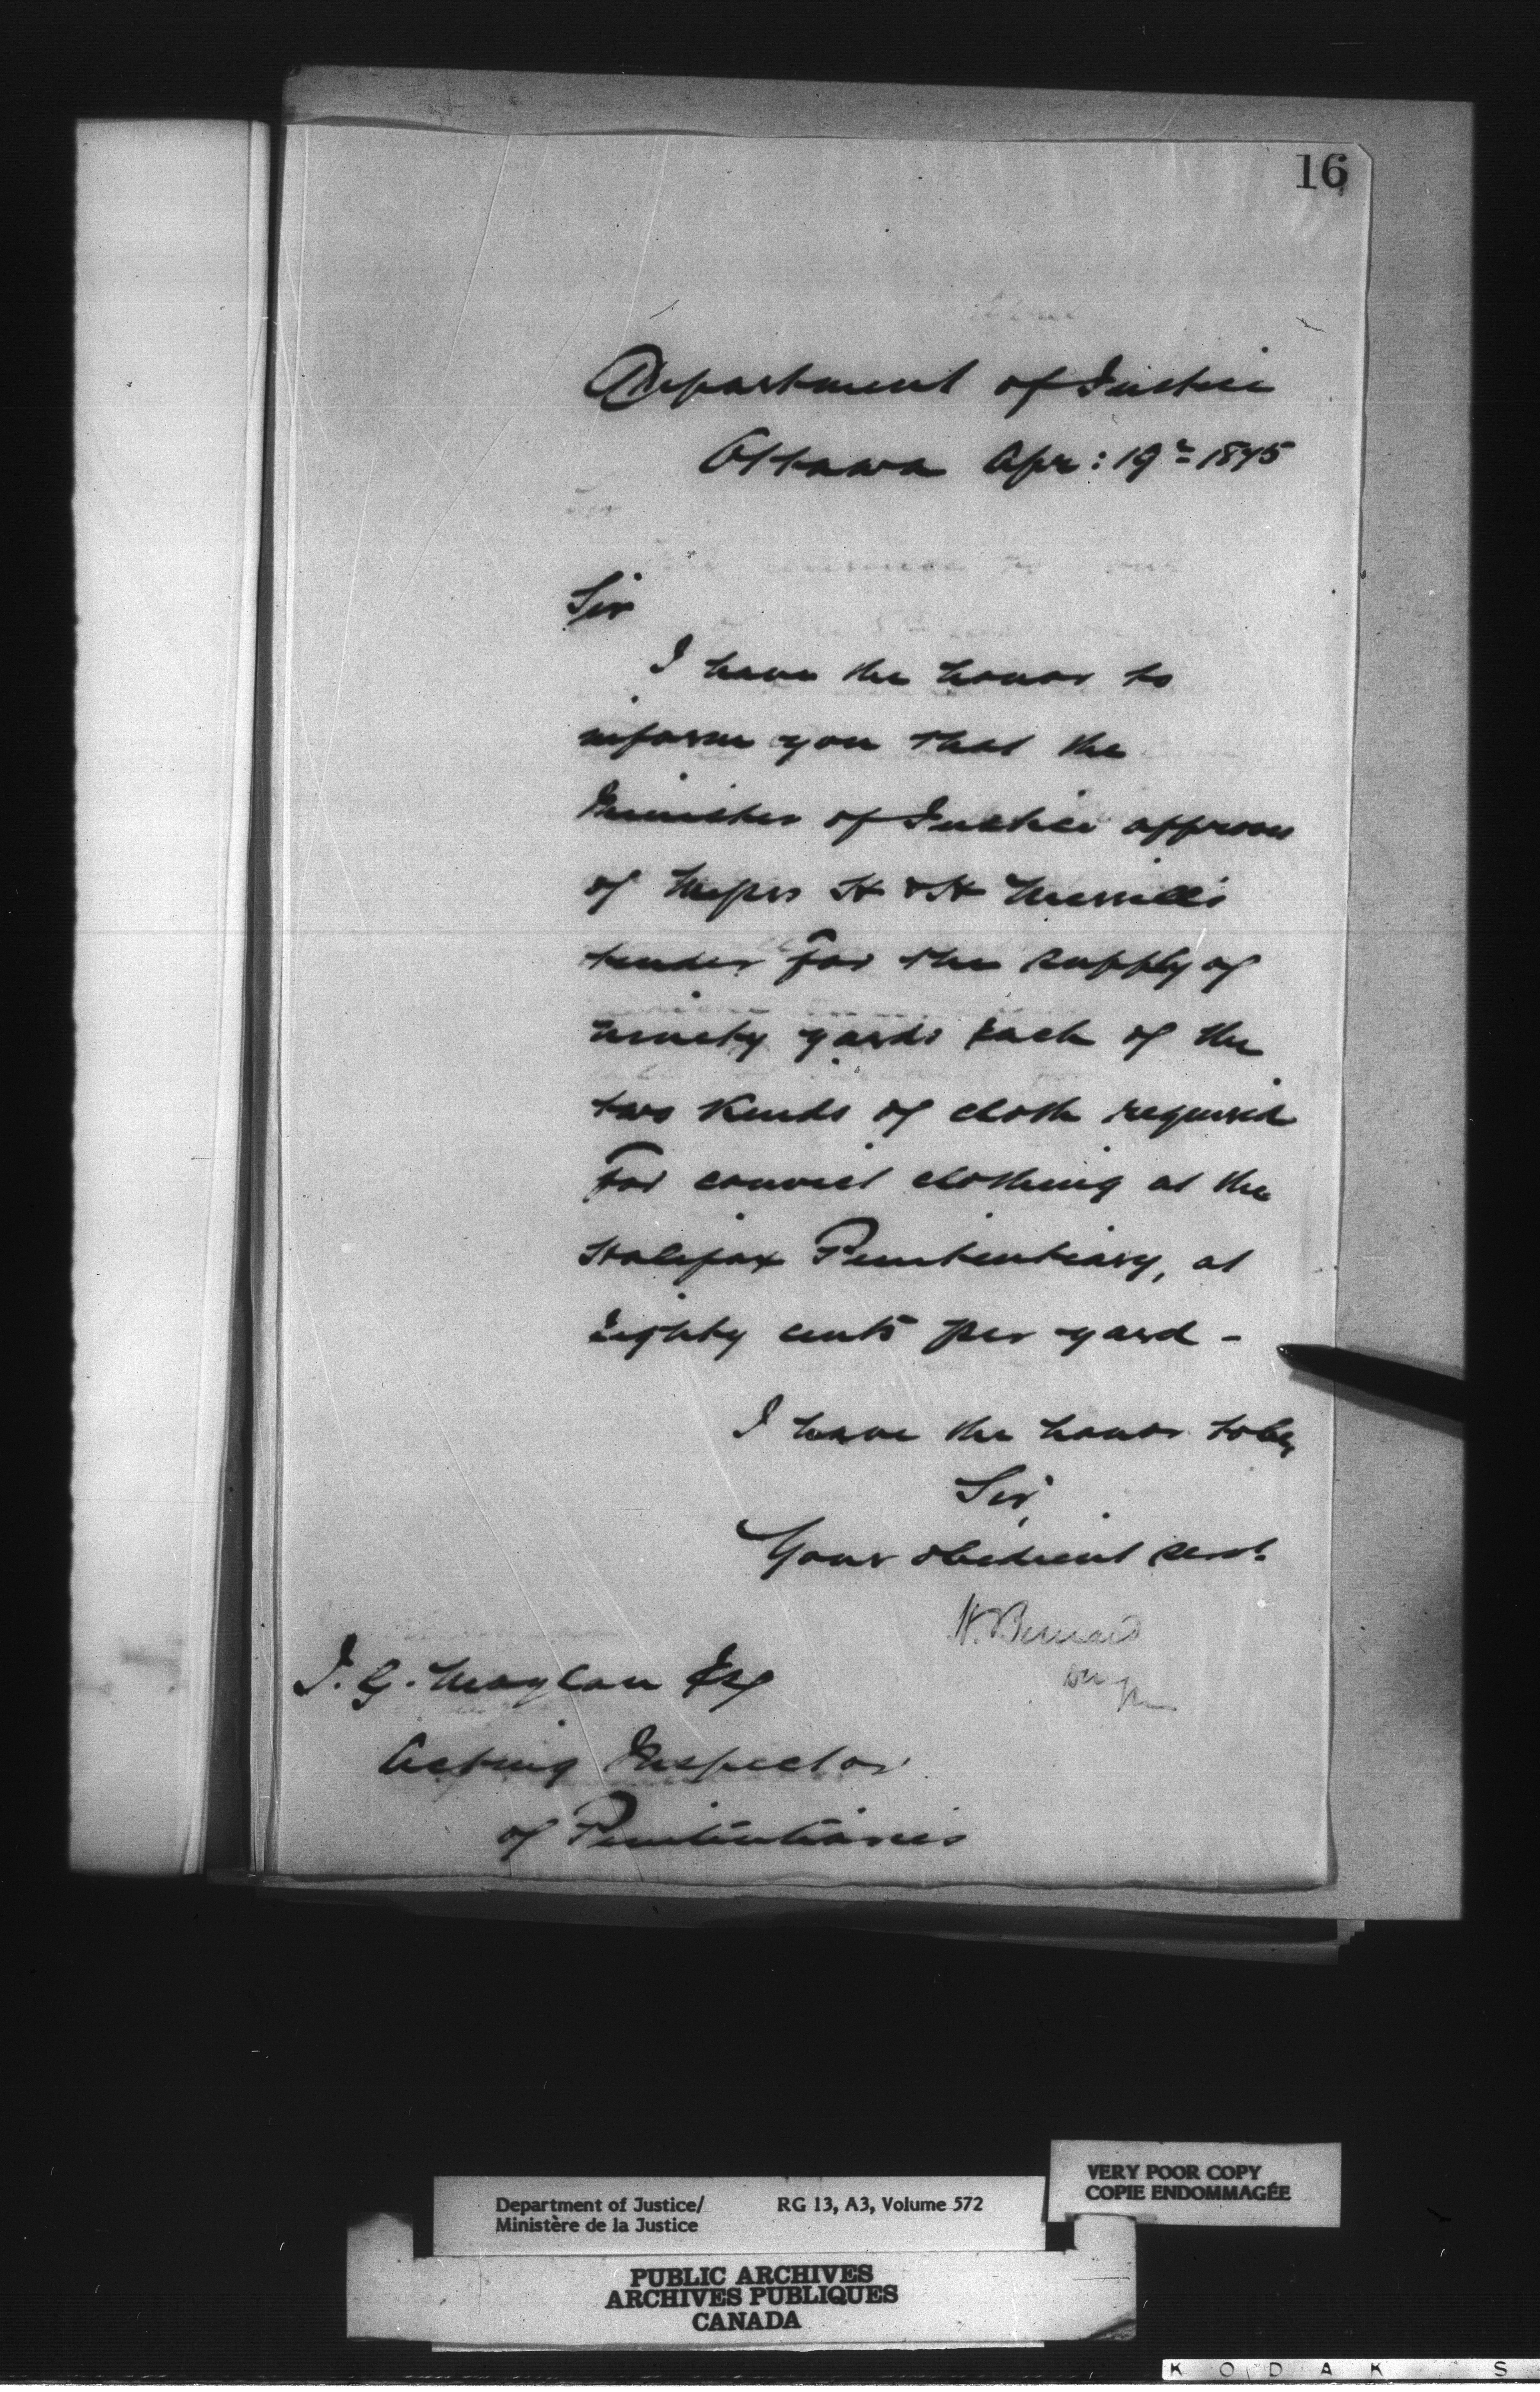 16
Department of Justice
Ottawa Apr: 19th 1875
Sir
I have the honor to
inform you that the
Minister of Justice approves
of Messrs H & H Merrill's
tender for the supply of
ninety yards each of the
two kinds of cloth required
for convict clothing at the
Halifax Penitentiary, at
Eighty cents per yard -
I have the honor to be,
Sir,
Your obedient servt.
H. Bernard
J. G. Moylan Esq
Acting Inspector
of Penitentiaries
VERY POOR COPY
COPIE ENDOMMAGÉE
Department of Justice/ RG 13, A3, Volume 572
Ministère de la Justice
PUBLIC ARCHIVES
ARCHIVES PUBLIQUES
CANADA
KODAK S